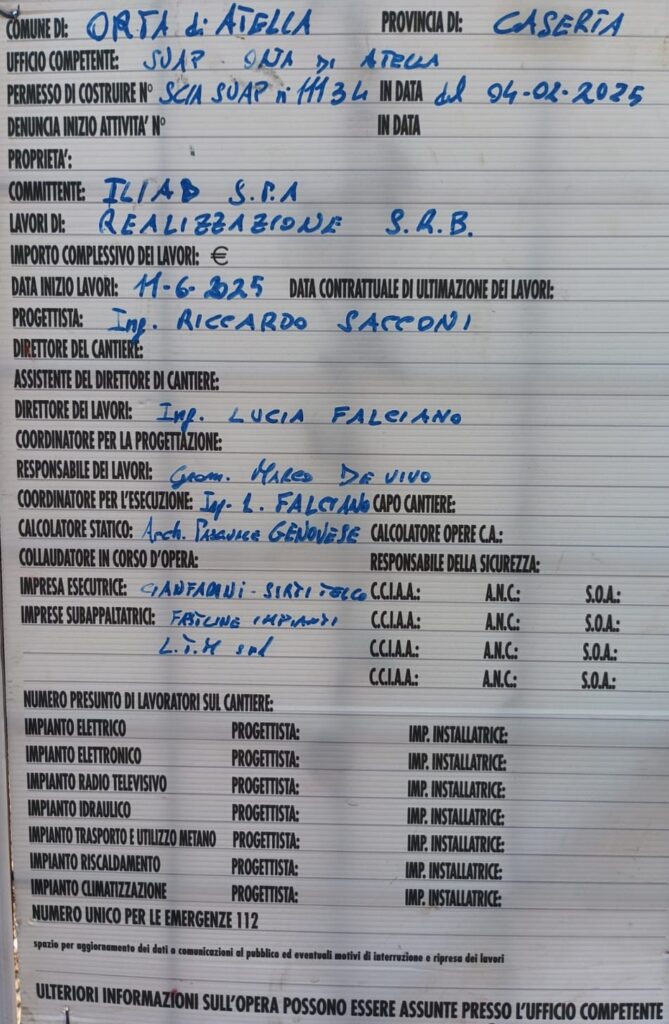 COMUNE DI: ORTA di ATELLA PROVINCIA DI: CASERTA
UFFICIO COMPETENTE: SUAP ORTA DI ATELLA
PERMESSO DI COSTRUIRE N° SCIA SUAP n° 11134 IN DATA del 04-02-2025
DENUNCIA INIZIO ATTIVITA' N° IN DATA
PROPRIETA':
COMMITTENTE: ILIAD S.P.A
LAVORI DI: REALIZZAZIONE S.R.B.
IMPORTO COMPLESSIVO DEI LAVORI: €
DATA INIZIO LAVORI: 11-6-2025 DATA CONTRATTUALE DI ULTIMAZIONE DEI LAVORI:
PROGETTISTA: Ing. RICCARDO SACCONI
DIRETTORE DEL CANTIERE:
ASSISTENTE DEL DIRETTORE DI CANTIERE:
DIRETTORE DEI LAVORI: Ing. LUCIA FALCIANO
COORDINATORE PER LA PROGETTAZIONE:
RESPONSABILE DEI LAVORI: Geom. MARCO DE VIVO
COORDINATORE PER L'ESECUZIONE: Ing. L. FALCIANO CAPO CANTIERE:
CALCOLATORE STATICO: Arch. PASQUALE GENOVESE CALCOLATORE OPERE C.A.:
COLLAUDATORE IN CORSO D'OPERA: RESPONSABILE DELLA SICUREZZA:
IMPRESA ESECUTRICE: - SIRTI TELCO C.C.I.A.A.: A.N.C.: S.O.A.:
IMPRESE SUBAPPALTATRICI: FASTLINE IMPIANTI C.C.I.A.A.: A.N.C.: S.O.A.:
L.T.M srl C.C.I.A.A.: A.N.C.: S.O.A.:
C.C.I.A.A.: A.N.C.: S.O.A.:
NUMERO PRESUNTO DI LAVORATORI SUL CANTIERE:
IMPIANTO ELETTRICO PROGETTISTA: IMP. INSTALLATRICE:
IMPIANTO ELETTRONICO PROGETTISTA: IMP. INSTALLATRICE:
IMPIANTO RADIO TELEVISIVO PROGETTISTA: IMP. INSTALLATRICE:
IMPIANTO IDRAULICO PROGETTISTA: IMP. INSTALLATRICE:
IMPIANTO TRASPORTO E UTILIZZO METANO PROGETTISTA: IMP. INSTALLATRICE:
IMPIANTO RISCALDAMENTO PROGETTISTA: IMP. INSTALLATRICE:
IMPIANTO CLIMATIZZAZIONE PROGETTISTA: IMP. INSTALLATRICE:
NUMERO UNICO PER LE EMERGENZE 112
spazio per aggiornamento dei dati o comunicazioni al pubblico ed eventuali motivi di interruzione e ripresa dei lavori
ULTERIORI INFORMAZIONI SULL'OPERA POSSONO ESSERE ASSUNTE PRESSO L'UFFICIO COMPETENTE